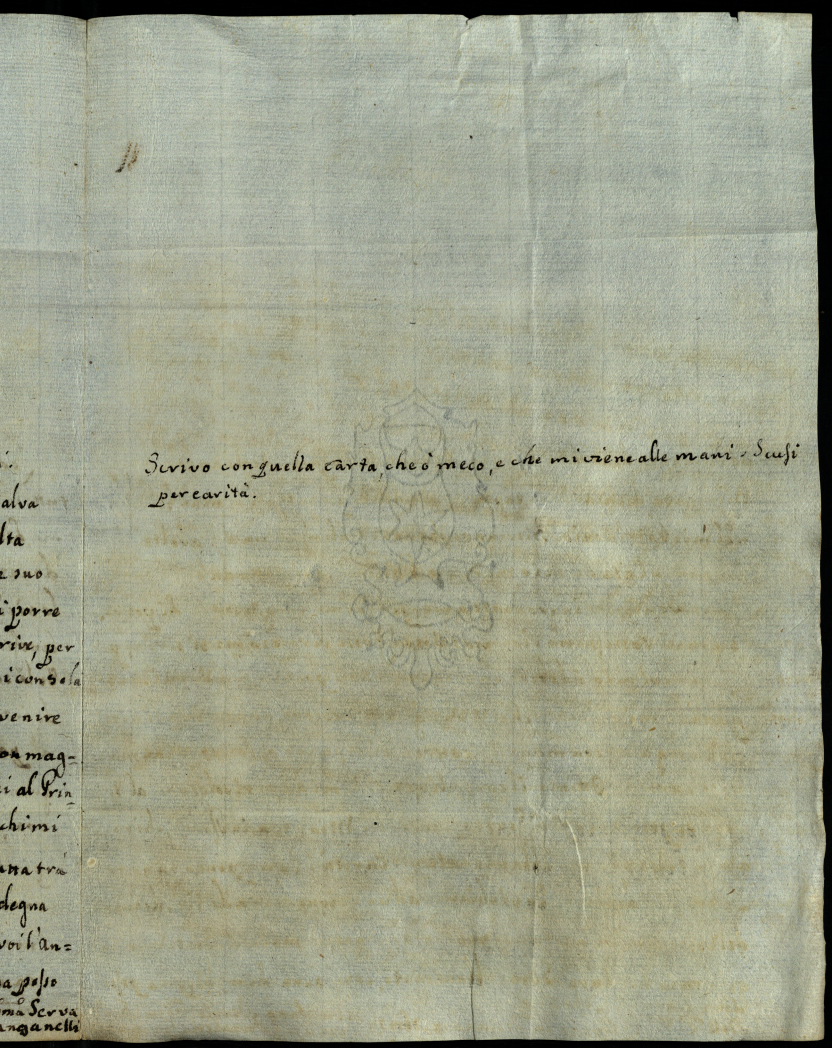 alva
lta
e suo
i porre
rire, per
i consola
venire
on mag=
i al Prin=
chimi
anna trà
degna
voi l'an=
a posso
ma Serva
anganelli
Scrivo con quella carta, che ò meco, e che mi viene alle mani. Scusi
per carità.